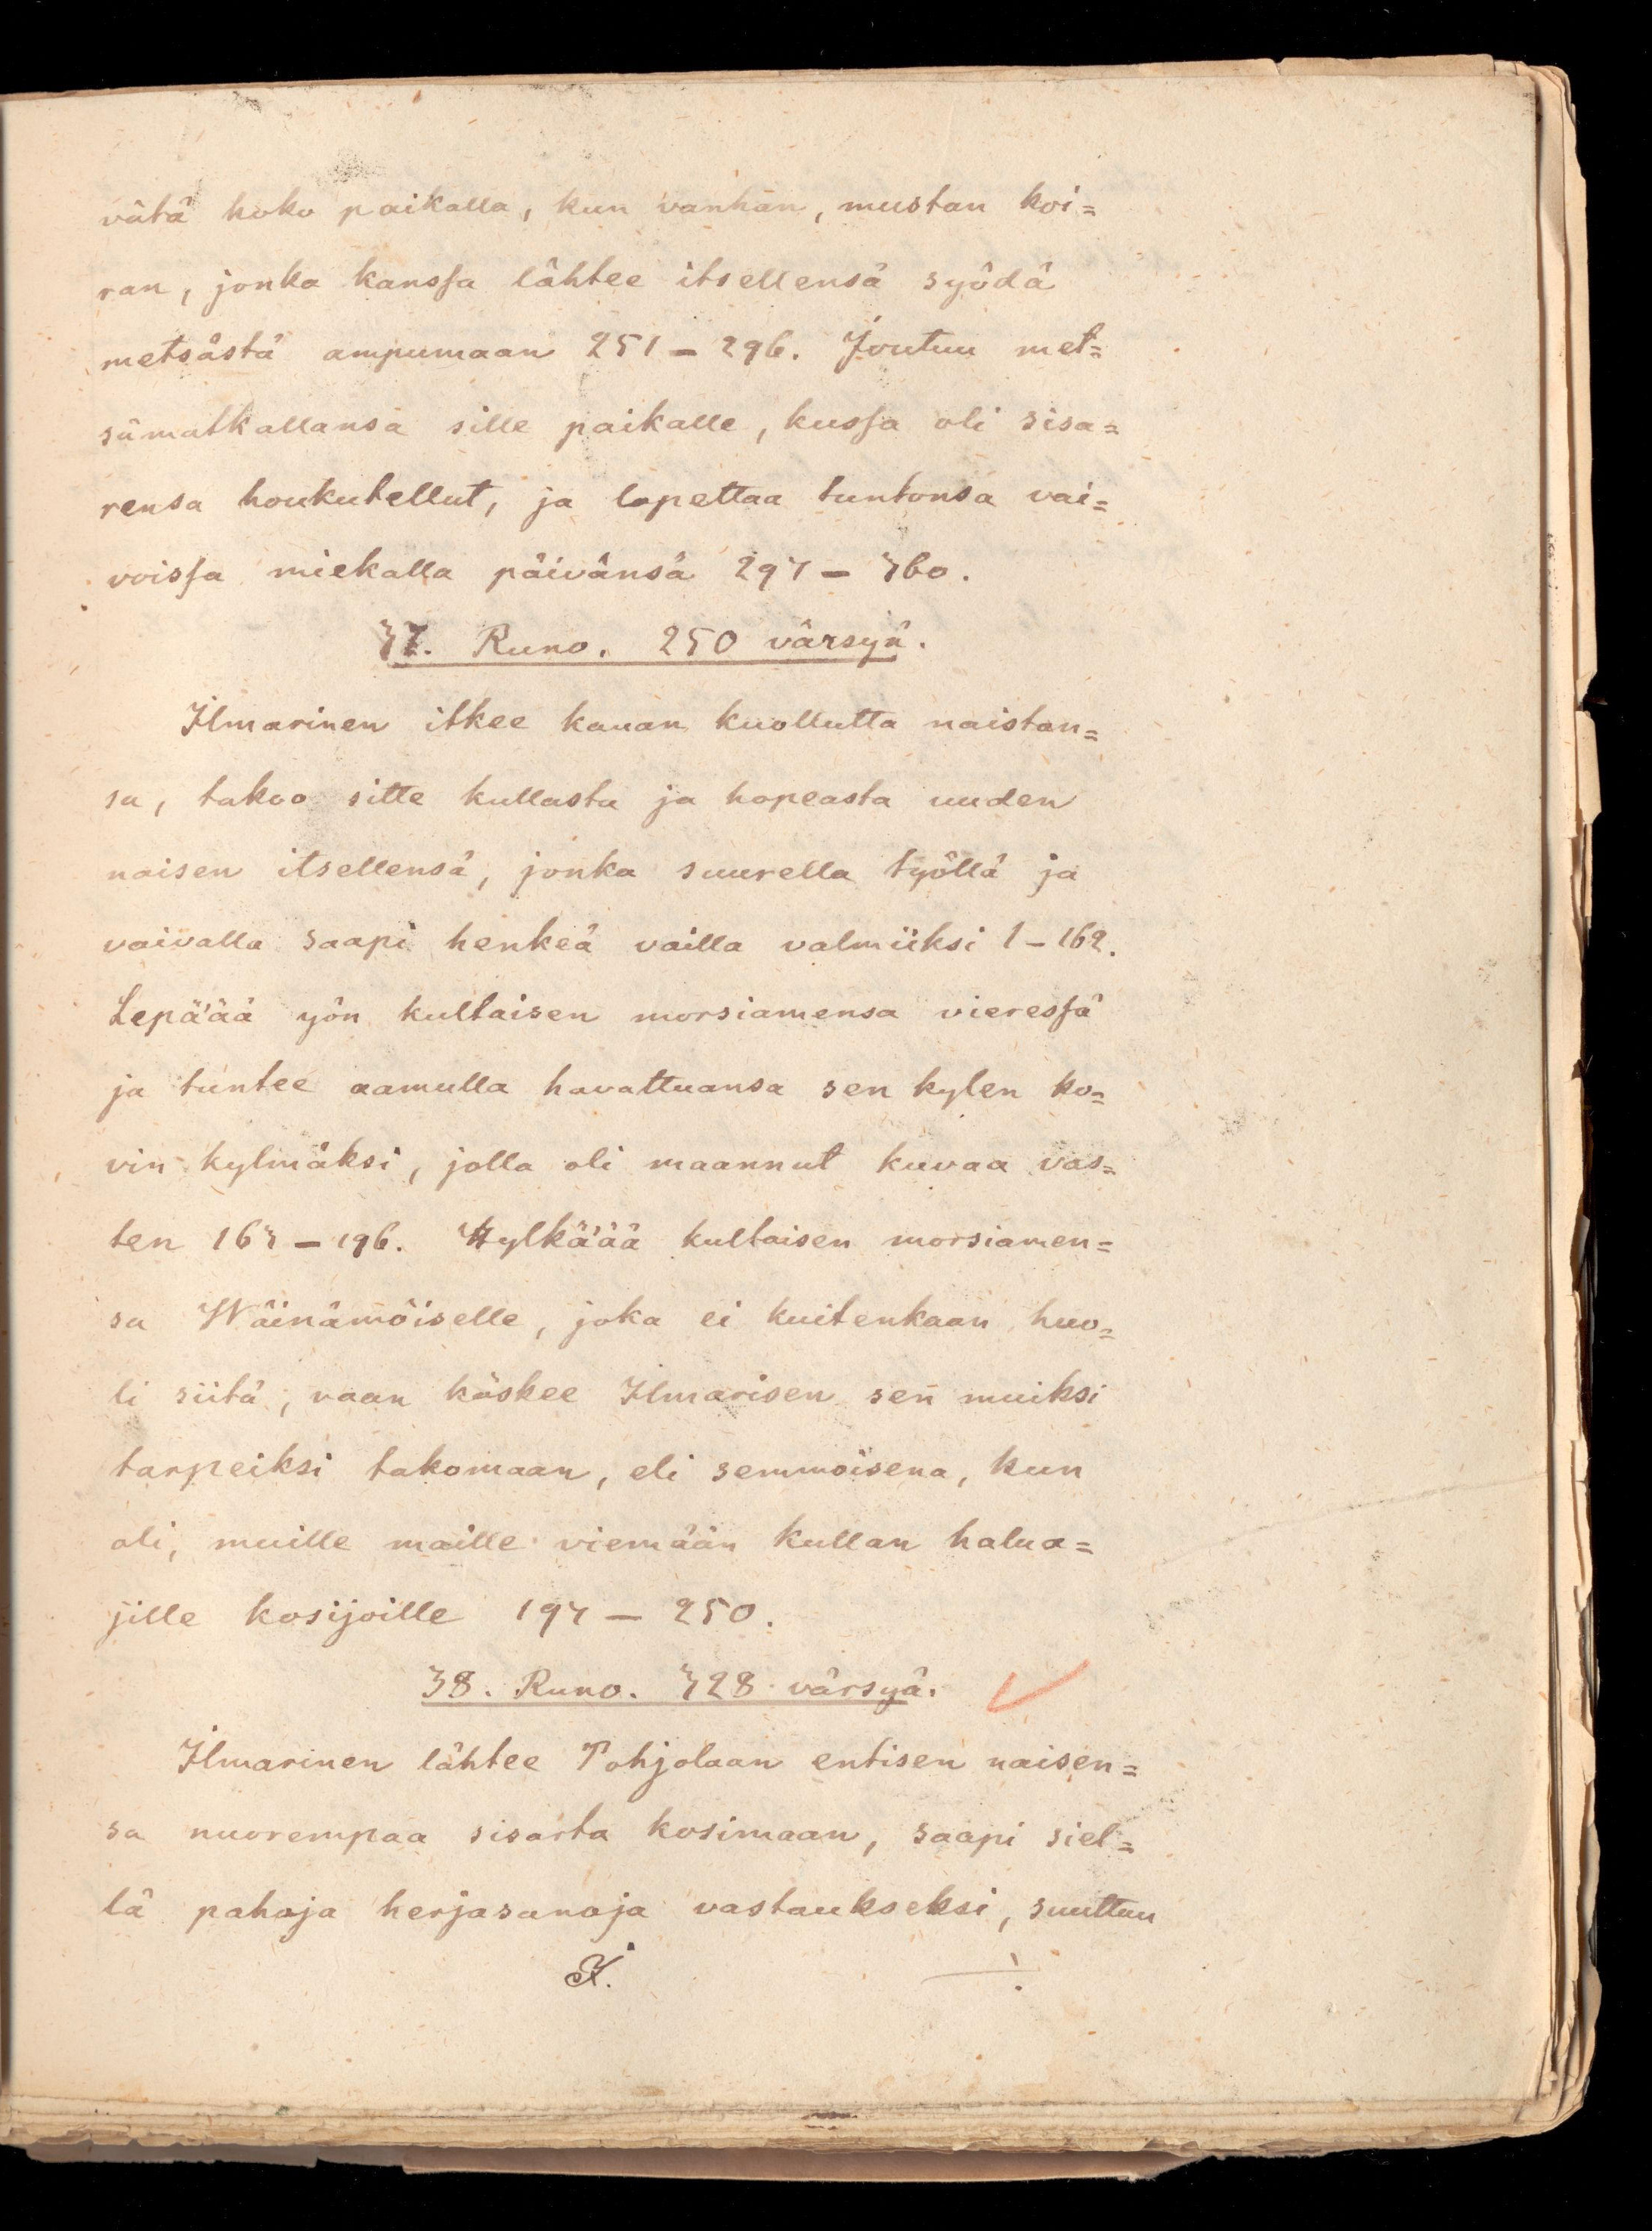 vätä koko paikalla, kun vanhan, mustan koi=
ran, jonka kansſa lähtee itsellensä syödä
metsästä ampumaan 251 – 296. Joutuu met=
sämatkallansa sille paikalle, kusſa oli sisa=
rensa houkutellut, ja lopettaa tuntonsa vai=
voisſa miekalla päivänsä 297 – 360.
37. Runo. 250 värsyä.
Ilmarinen itkee kauan kuollutta naistan=
sa, takoo sitte kullasta ja hopeasta uuden
naisen itsellensä, jonka suurella työllä ja
vaivalla saapi henkeä vailla valmiiksi 1 – 162.
Lepä'ää yön kultaisen morsiamensa vieresſä
ja tuntee aamulla havattuansa sen kylen ko=
vin kylmäksi, jolla oli maannut kuvaa vas=
ten 163 – 196. Hylkä'ää kultaisen morsiamen=
sa Wäinämöiselle, joka ei kuitenkaan huo=
li siitä, vaan käskee Ilmarisen sen muiksi
tarpeiksi takomaan, eli semmoisena, kun
oli, muille maille viemään kullan halua=
jille kosijoille 197 – 250.
38. Runo. 328 värsyä.
Ilmarinen lähtee Pohjolaan entisen naisen=
sa nuorempaa sisarta kosimaan, saapi siel=
lä pahoja herjasanoja vastaukseksi, suuttuu